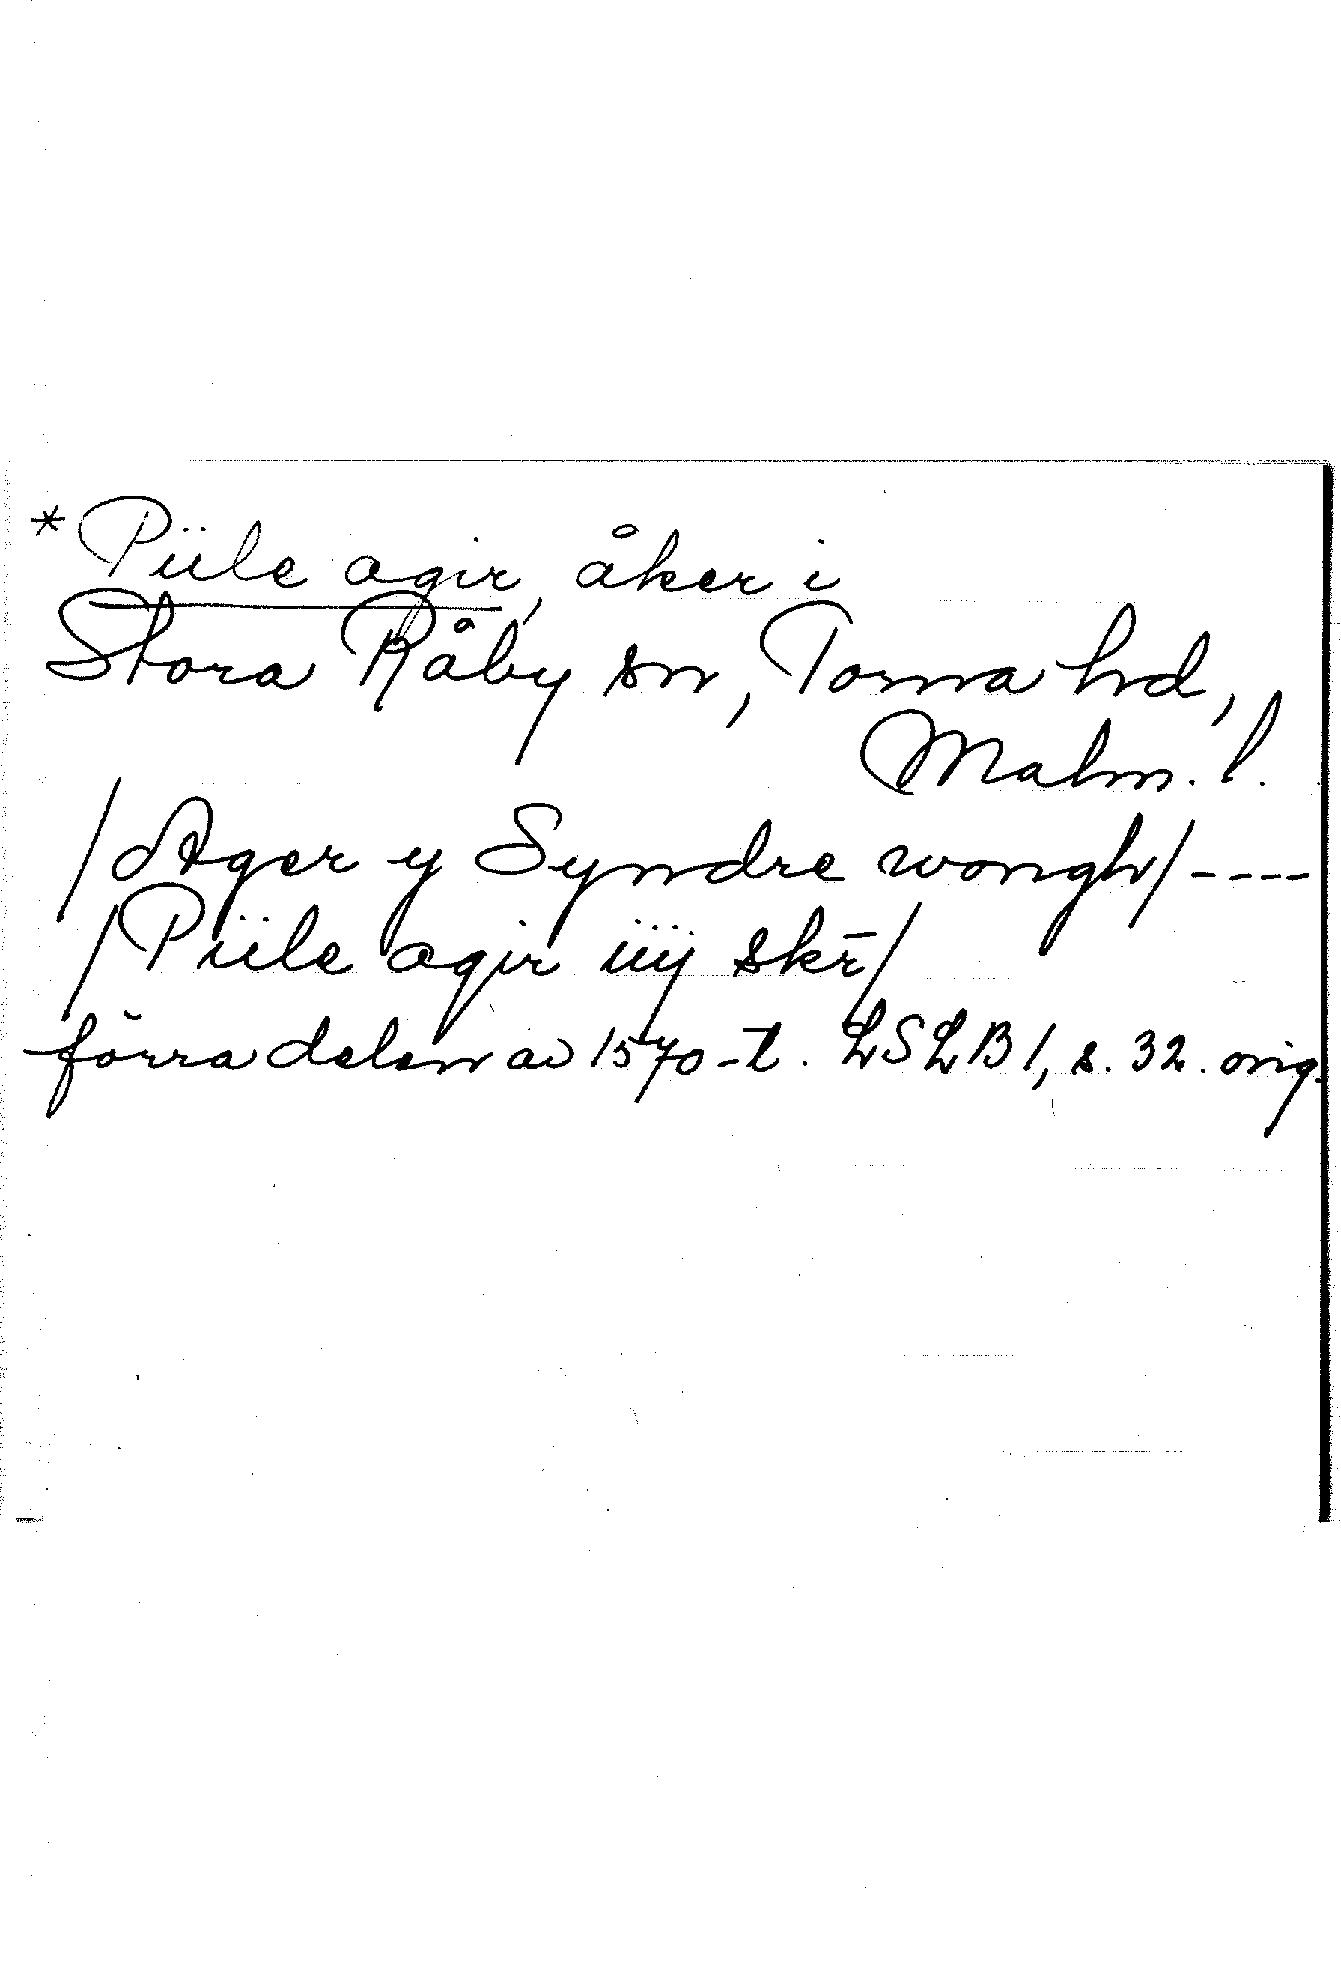 * Piile agir, åker i
Stora Råby sn, Torna hd,
Malm. l.
/Ager y Syndre wongh/----
/Piile agir iiÿ skr̄/
förra delen av 1570-t. LSLB 1, s. 32. orig.